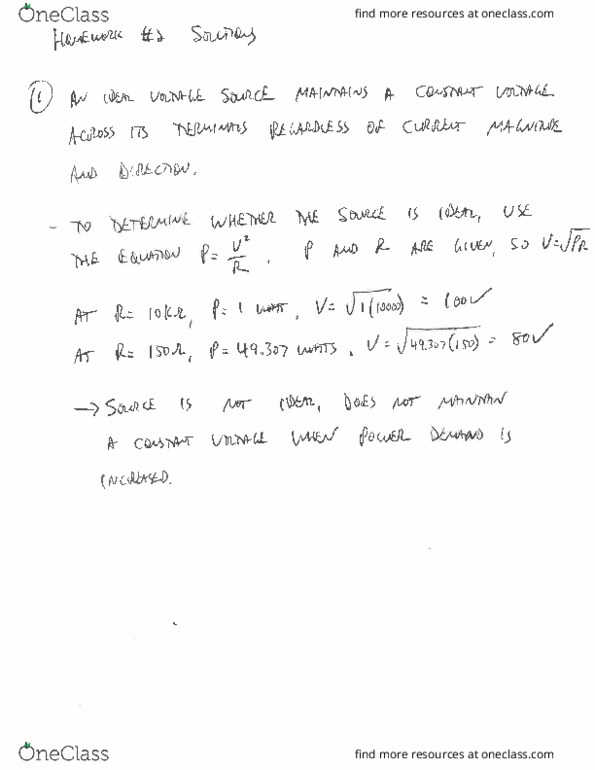 OneClass
find more resources at oneclass.com
HOMEWORK #2 SOLUTIONS
① AN IDEAL VOLTAGE SOURCE MAINTAINS A CONSTANT VOLTAGE
ACROSS ITS TERMINALS REGARDLESS OF CURRENT MAGNITUDE
AND DIRECTION.
- TO DETERMINE WHETHER THE SOURCE IS IDEAL, USE
THE EQUATION P = V²/R. P AND R ARE GIVEN, SO V=√PR
AT R= 10KΩ, P= 1 WATT, V= √1(10000) = 100V
AT R= 150Ω, P= 49.307 WATTS, V= √49.307(150) = 80V
→ SOURCE IS NOT IDEAL, DOES NOT MAINTAIN
A CONSTANT VOLTAGE WHEN POWER DEMAND IS
INCREASED.
OneClass
find more resources at oneclass.com